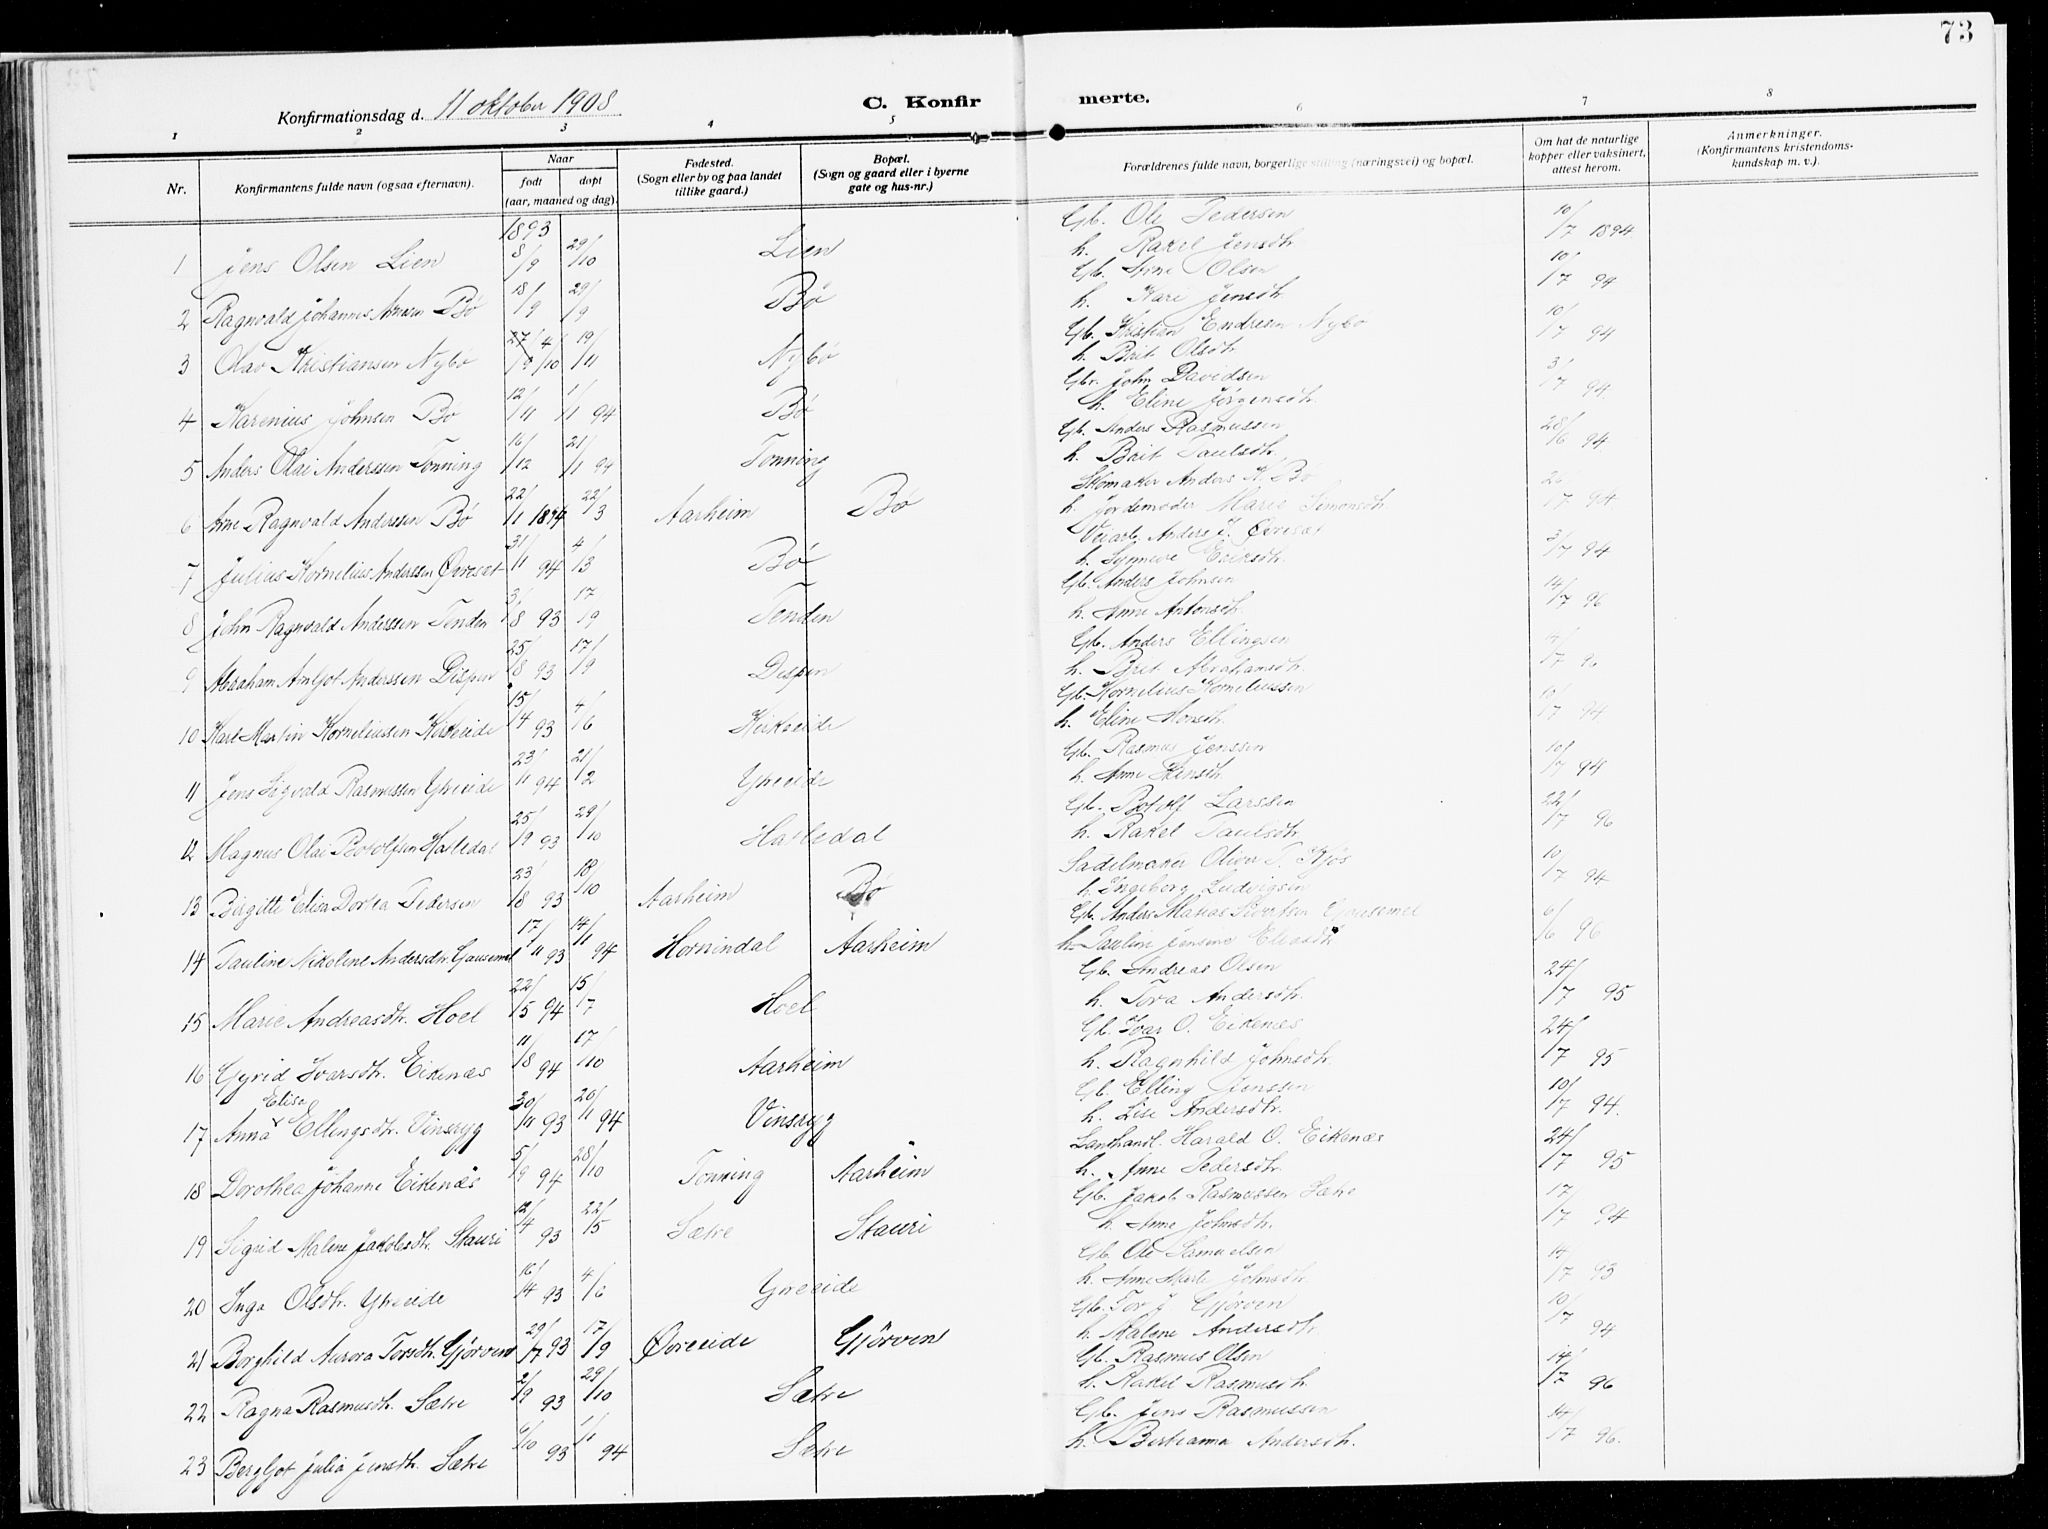 73
Konfirmationsdag d. 11 oktober 1908
C. Konfirmerte.
1 2 3 4 5 6 7 8
Nr. Konfirmantens fulde navn (ogsaa efternavn). Naar født døpt (aar, maaned og dag). Fødested. (Sogn eller by og paa landet tillike gaard.) Bopæl. (Sogn og gaard eller i byerne gate og hus-nr.) Forældrenes fulde navn, borgerlige stilling (næringsvei) og bopæl. Om hat de naturlige kopper eller vaksinert, attest herom. Anmerkninger. (Konfirmantens kristendomskundskap m. v.).
1 Jens Olsen Lien 1893 8/9 29/10 Lien Gb. Ole Pedersen h. Rakel Jensdtr. 10/7 1894
2 Ragnvald Johannes Arnesen Bø 18/9 29/9 Bø Gb. Arne Olsen h. Kari Jensdtr. 10/7 94
3 Olav Kristiansen Nybø 27/9 4/10 19/11 Nybø Gb. Kristian Endresen Nybø h. Brit Olsdtr. 10/7 94
4 Karenius Johnsen Bø 12/11 1/1 94 Bø Gbr. John Davidsen h. Eline Jørgensdtr. 3/7 94
5 Anders Olai Anderssen Tonning 16/12 21/1 94 Tonning Gb. Anders Rasmussen h. Brit Paulsdtr. 28/6 94
6 Arne Ragnvald Anderssen Bø 22/1 1894 22/3 Aarheim Bø Skomaker Anders K. Bø h. Jordemoder Marie Simonsdtr. 26/7 94
7 Julius Kornelius Anderssen Øvresæt 31/1 94 4/3 Bø Veiarb. Anders J. Øvresæt h. Synneve Eriksdtr. 3/7 94
8 John Ragnvald Anderssen Tenden 3/8 93 17/9 Tenden Gb. Anders Johnsen h. Anne Antonsdtr. 14/7 96
9 Abraham Arnljot Anderssen Dispen 25/8 93 17/9 Dispen Gb. Anders Ellingsen h. Brit Abrahamsdtr. 14/7 96
10 Karl Martin Korneliussen Kirkeide 15/4 93 4/6 Kirkeide Gb. Kornelius Korneliussen h. Eline Monsdtr. 10/7 94
11 Jens Sigvald Rasmussen Ytreeide 23/1 94 21/2 Ytreeide Gb. Rasmus Jenssen h. Anne Hensdtr. 10/7 94
12 Magnus Olai Botolfsen Hatledal 25/9 93 29/10 Hatledal Gb. Botolf Larssen h. Rakel Paulsdtr. 22/7 96
13 Birgitte Elisa Dortea Pedersen 23/8 93 18/10 Aarheim Bø Sadelmaker Oliver P. Kjøs h. Ingeborg Ludvigsen 10/7 94
14 Pauline Nikoline Andersdtr. Gausemel 17/11 93 14/1 94 Hornindal Aarheim Gb. Anders Matias Sivertsen Gausemel h. Paulin Jensine Eliasdtr. 6/6 96
15 Marie Andreasdtr. Hoel 22/5 94 15/7 Hoel Gb. Andreas Olsen h. Tora Andersdtr. 24/7 95
16 Gyrid Ivarsdtr. Eikenæs 11/8 94 17/10 Aarheim Gb. Ivar O. Eikenæs h. Ragnhild Johnsdtr. 24/7 95
17 Anna Elisa Ellingsdtr. Vinsryg 30/11 93 20/1 94 Vinsryg Gb. Elling Jenssen h. Lise Andersdtr. 10/7 94.
18 Dorothea Johanne Eikenæs 5/9 94 28/10 Tonning Aarheim Lanthandl. Harald O. Eikenæs h. Anne Pedersdtr. 24/7 95
19 Sigrid Malene Jakobsdtr. Stauri 12/4 93 22/5 Sætre Stauri Gb. Jakob Rasmussen Sætre h. Anne Johnsdtr. 17/7 94
20 Inga Olsdtr. Ytreeide 16/4 93 4/6 Ytreeide Gb. Ole Samuelsen h. Anne Marte Johnsdtr. 14/7 93
21 Borghild Aurora Torsdtr. Gjørven 29/7 93 17/9 Øvreeide Gjørven Gb. Tor J. Gjørven h. Malene Andersdtr. 10/7 94
22 Ragna Rasmusdtr. Sætre 2/9 93 29/10 Sætre Gb. Rasmus Olsen h. Rakel Rasmusdtr. 14/7 96
23 Bergljot Julia Jensdtr. Sætre 6/10 93 1/1 94 Sætre Gb. Jens Rasmussen h. Bertianna Andersdtr. 14/7 96.